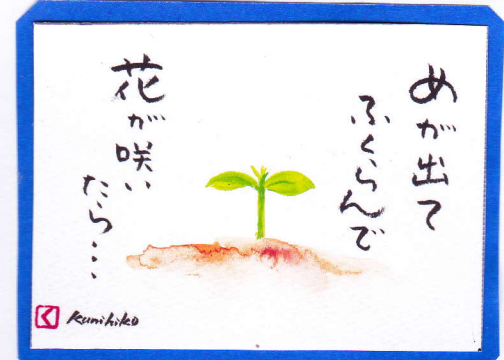 めが出て
ふくらんで
花が咲い
たら…
く Kunihiko